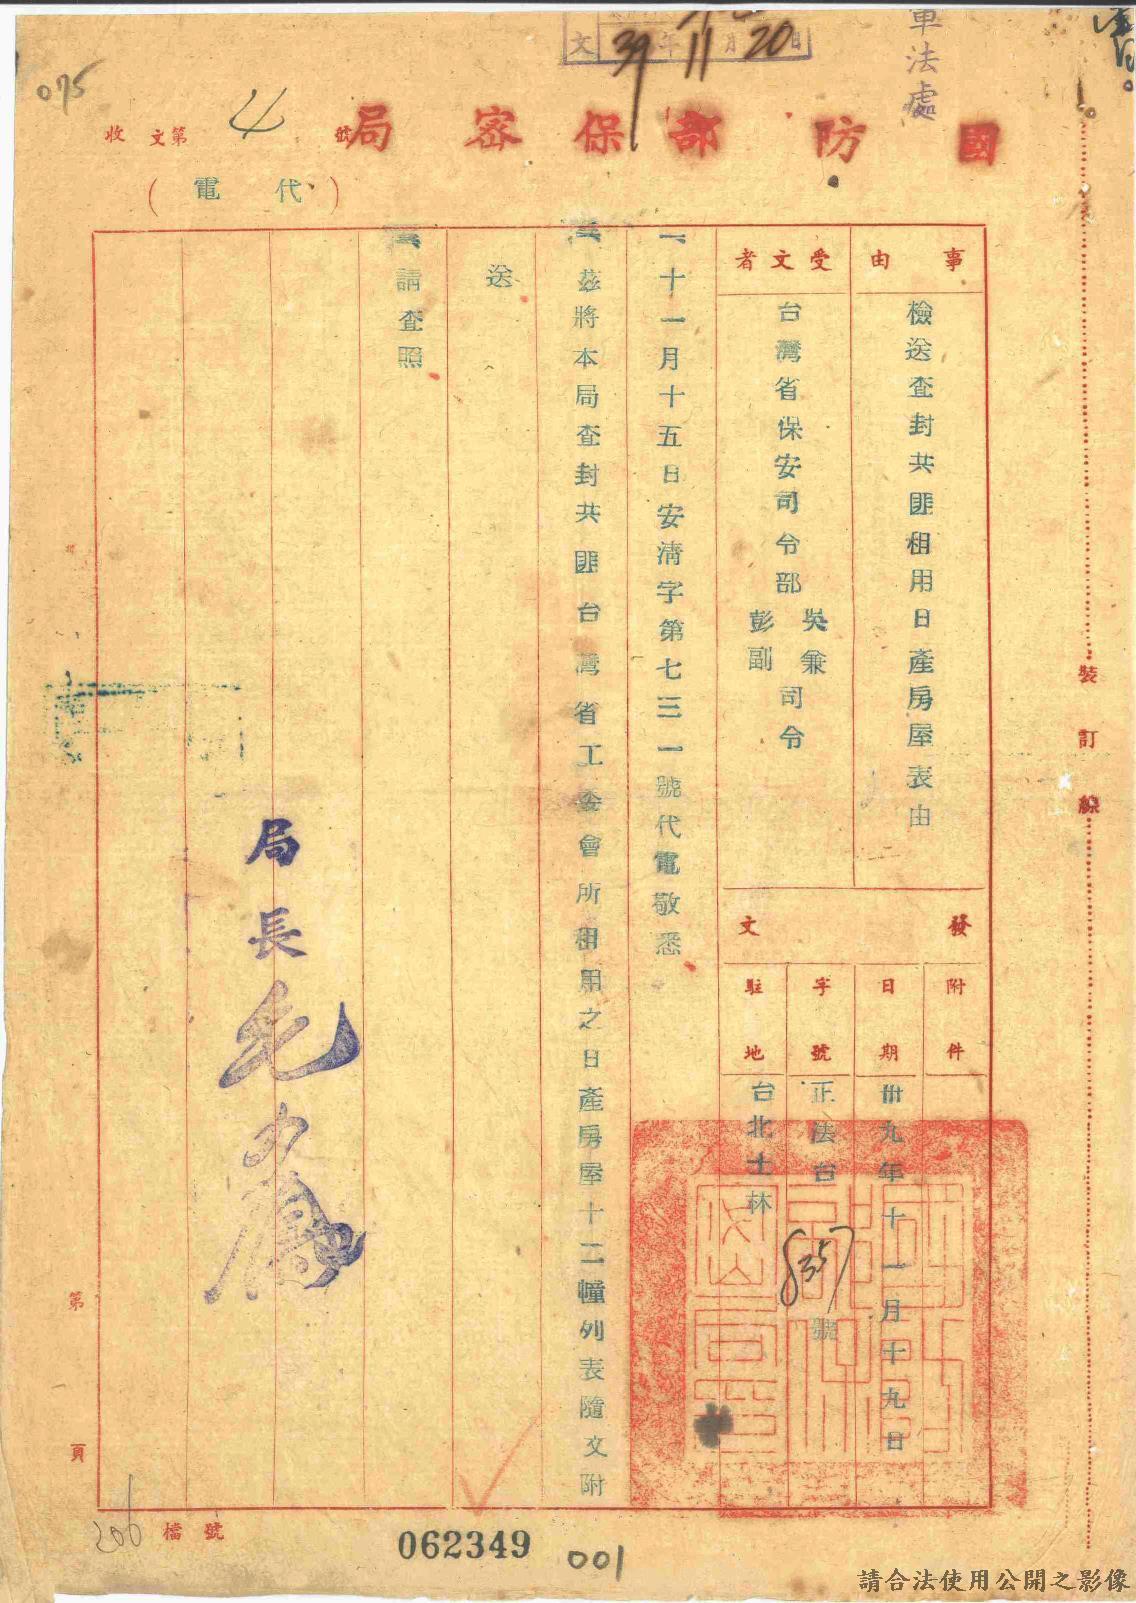 軍法處
文 39年11月20日
075
國防部保密局
收文第 4 號
(代電)
事由
檢送查封共匪租用日產房屋表由
受文者
台灣省保安司令部
吳兼司令
彭副
發文
附件
日期
卅九年十一月十九日
字號
正法台8357號
駐地
台北士林
一、十一月十五日安清字第七三一號代電敬悉
二、茲將本局查封共匪台灣省工委會所租用之日產房屋十二幢列表隨文附
送
三、請查照
局長毛人鳳
裝訂線
第
頁
206
檔號
062349
001
請合法使用公開之影像